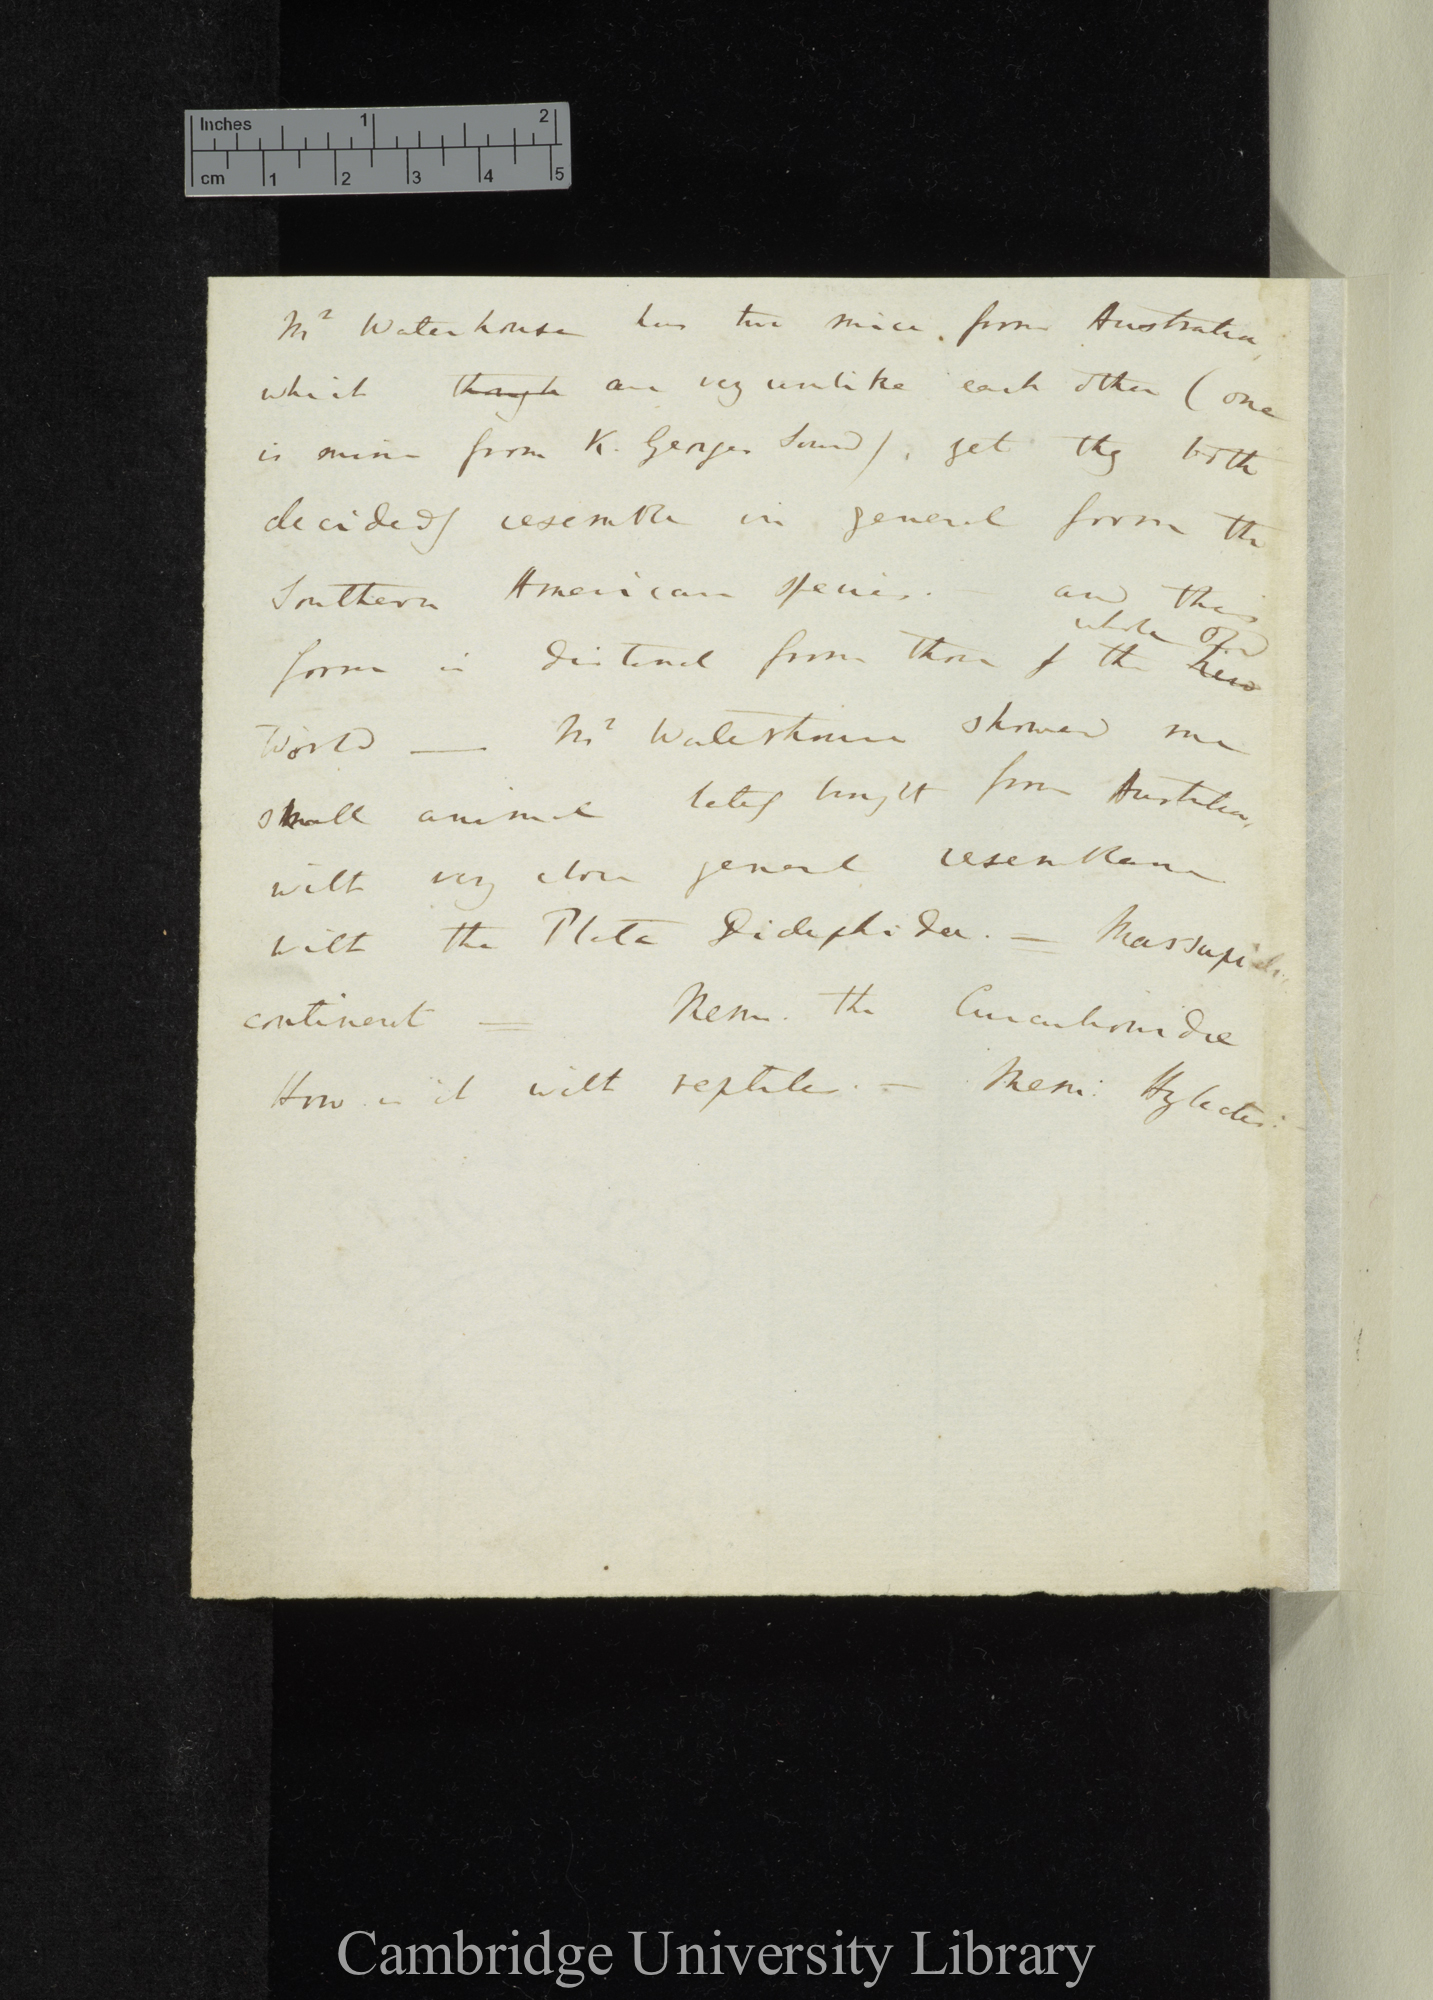 Inches 1 2
cm 1 2 3 4 5
Mr Waterhouse has two mice from Australia,
which though are very unlike each other (one
is mine from K. Georges Sound), yet they both
decidedly resemble in general form the
Southern American species. — and this
whole old
form is distinct from those of the New
World — Mr Waterhouse showed me
small animal lately brought from Australia,
with very close general resemblance
with the Plata Didelphidae. = Marsupial
continent = Mem. the Curculionidae
How is it with reptiles. — Mem:
Cambridge University Library